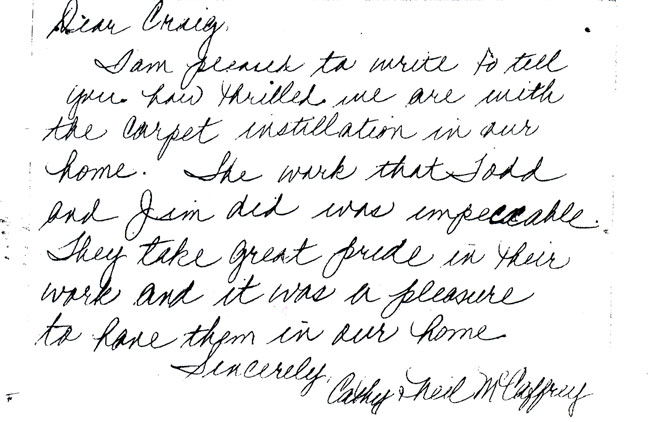 Dear Craig,
I am pleased to write to tell
you how thrilled we are with
the carpet instillation in our
home. The work that Todd
and Jim did was impeccable.
They take great pride in their
work and it was a pleasure
to have them in our home
Sincerely,
Cathy & Neil McCaffrey